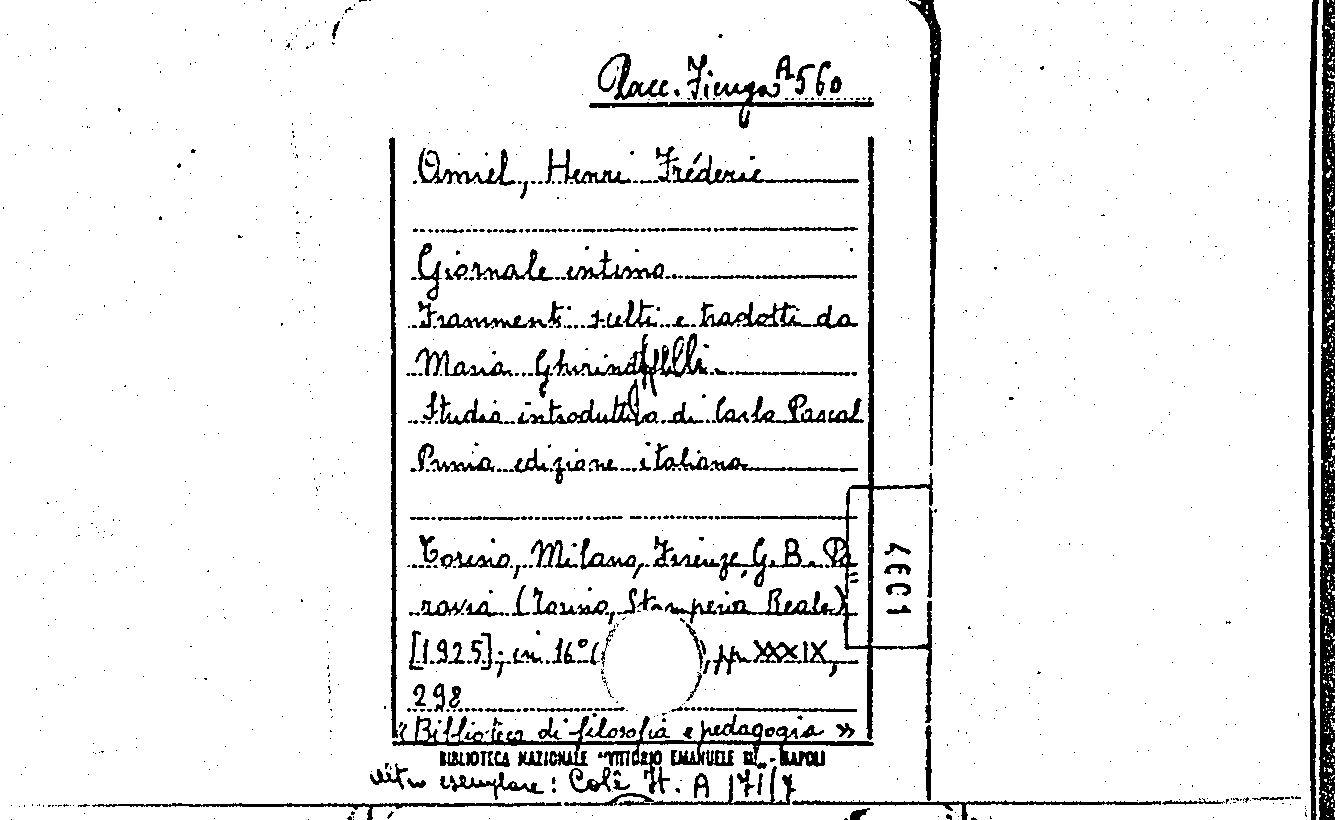 Racc. Fienga A 560
Amiel, Henri Fréderic
Giornale intimo
Frammenti scelti e tradotti da
Maria Ghirindelli.
Studio introduttivo di Carlo Pascal
Prima edizione italiana
Torino, Milano, Firenze, G. B. Pa=
ravia (Torino, Stamperia Reale)
[1925]; in 16° ( , pp. XXXIX,
298
« Biblioteca di filosofia e pedagogia »
BIBLIOTECA NAZIONALE "VITTORIO EMANUELE III" - NAPOLI
altro esemplare: Coll. It. A 171/7